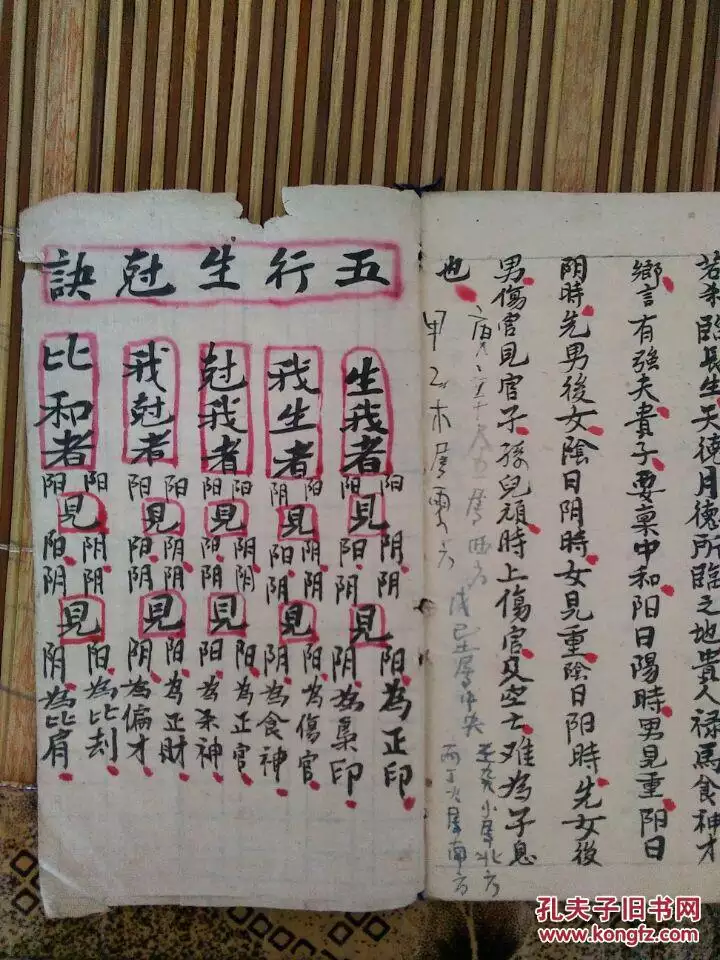 臨長生天德月德所臨之地貴人禄馬食神才
鄉言有強夫貴子要禀中和阳日陽時男見重阳日
阴時先男後女陰日阴時女見重陰日阳時先女後
男傷官見官子孫兒頑時上傷官及空亡难為子息
也
壬癸水属北方
戊己土属中央
丙丁火属南方
甲乙木属
五行生尅訣
生我者
阳見阴阴見阳為正印
阳阳阴阴為梟印
我生者
阳見阴阴見阳為傷官
阴阳阴阴為食神
尅我者
阳見阴阴見阳為正官
阳阳阴阳為杀神
我尅者
阳見阴阴見阳為正財
阳阳阴阴為偏才
比和者
阳見阴阴見阳為比刦
阳阳阴阴為比肩
孔夫子旧书网
www.kongfz.com